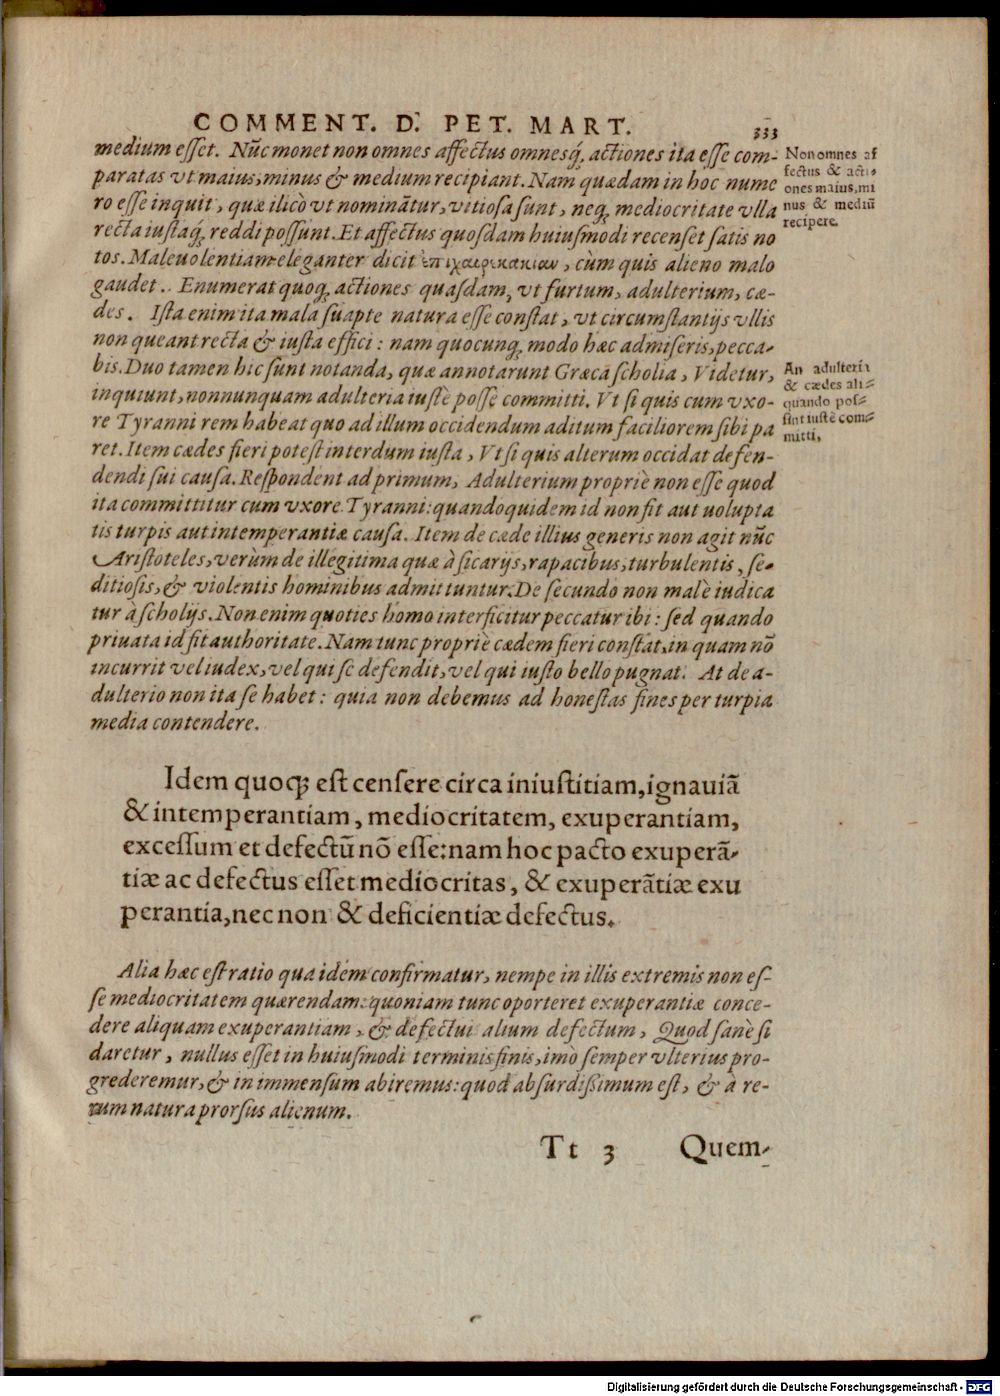 COMMENT. D. PET. MART. 333
medium eſſet. Nũc monet non omnes affectus omnesq́; actiones ita eſſe com-
paratas vt maius, minus & medium recipiant. Nam quædam in hoc nume
ro eſſe inquit, quæ ilicò vt nominãtur, vitioſa ſunt, neq; mediocritate vlla
recta iuſtaq́; reddi poſſunt. Et affectus quoſdam huiuſmodi recenſet ſatis no
tos. Maleuolentiam eleganter dicit ἐπιχαιρεκακίαν, cùm quis alieno malo
gaudet. Enumerat quoq; actiones quaſdam, vt furtum, adulterium, cæ-
des. Iſta enim ita mala ſuapte natura eſſe conſtat, vt circumſtantijs vllis
non queant recta & iuſta effici: nam quocunq; modo hæc admiſeris, pecca-
bis. Duo tamen hic ſunt notanda, quæ annotarunt Græca ſcholia, Videtur,
inquiunt, nonnunquam adulteria iuſtè poſſe committi. Vt ſi quis cum vxo-
re Tyranni rem habeat quo ad illum occidendum aditum faciliorem ſibi pa
ret. Item cædes fieri poteſt interdum iuſta, Vt ſi quis alterum occidat defen-
dendi ſui cauſa. Reſpondent ad primum, Adulterium propriè non eſſe quod
ita committitur cum vxore Tyranni: quandoquidem id non fit aut uolupta
tis turpis aut intemperantiæ cauſa. Item de cæde illius generis non agit nũc
Ariſtoteles, verùm de illegitima quæ à ſicarijs, rapacibus, turbulentis, ſe-
ditioſis, & violentis hominibus admittuntur. De ſecundo non malè iudica
tur à ſcholijs. Non enim quoties homo interficitur peccatur ibi: ſed quando
priuata id fit authoritate. Nam tunc propriè cædem fieri conſtat, in quam nõ
incurrit vel iudex, vel qui ſe defendit, vel qui iuſto bello pugnat. At de a-
dulterio non ita ſe habet: quia non debemus ad honeſtas fines per turpia
media contendere.
Non omnes af
fectus & acti-
ones maius, mi
nus & mediũ
recipere.
An adulteria
& cædes ali-
quando poſ-
ſint iuſtè com-
mitti,
Idem quoq; eſt cenſere circa iniuſtitiam, ignauiã
& intemperantiam, mediocritatem, exuperantiam,
exceſſum et defectũ nõ eſſe: nam hoc pacto exuperã-
tiæ ac defectus eſſet mediocritas, & exuperãtiæ exu
perantia, nec non & deficientiæ defectus.
Alia hæc eſt ratio qua idem confirmatur, nempe in illis extremis non eſ-
ſe mediocritatem quærendam: quoniam tunc oporteret exuperantiæ conce-
dere aliquam exuperantiam, & defectui alium defectum, Quod ſanè ſi
daretur, nullus eſſet in huiuſmodi terminis finis, imò ſemper vlterius pro-
grederemur, & in immenſum abiremus: quod abſurdißimum eſt, & à re-
rum natura prorſus alienum.
Tt 3 Quem-
Digitalisierung gefördert durch die Deutsche Forschungsgemeinschaft - DFG